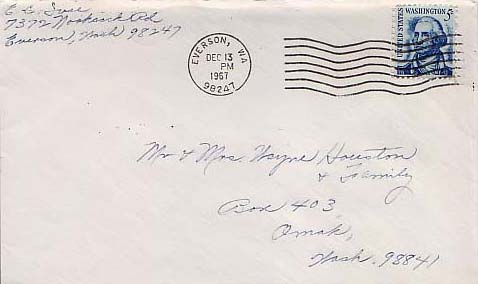 E E
7372 Nooksack Rd
Everson, Wash 98247
EVERSON, WA
DEC 13
PM
1967
98247
UNITED STATES
WASHINGTON 5¢
Mr & Mrs. Wayne Houston
& Family
Box 403
Omak,
Wash. 98841